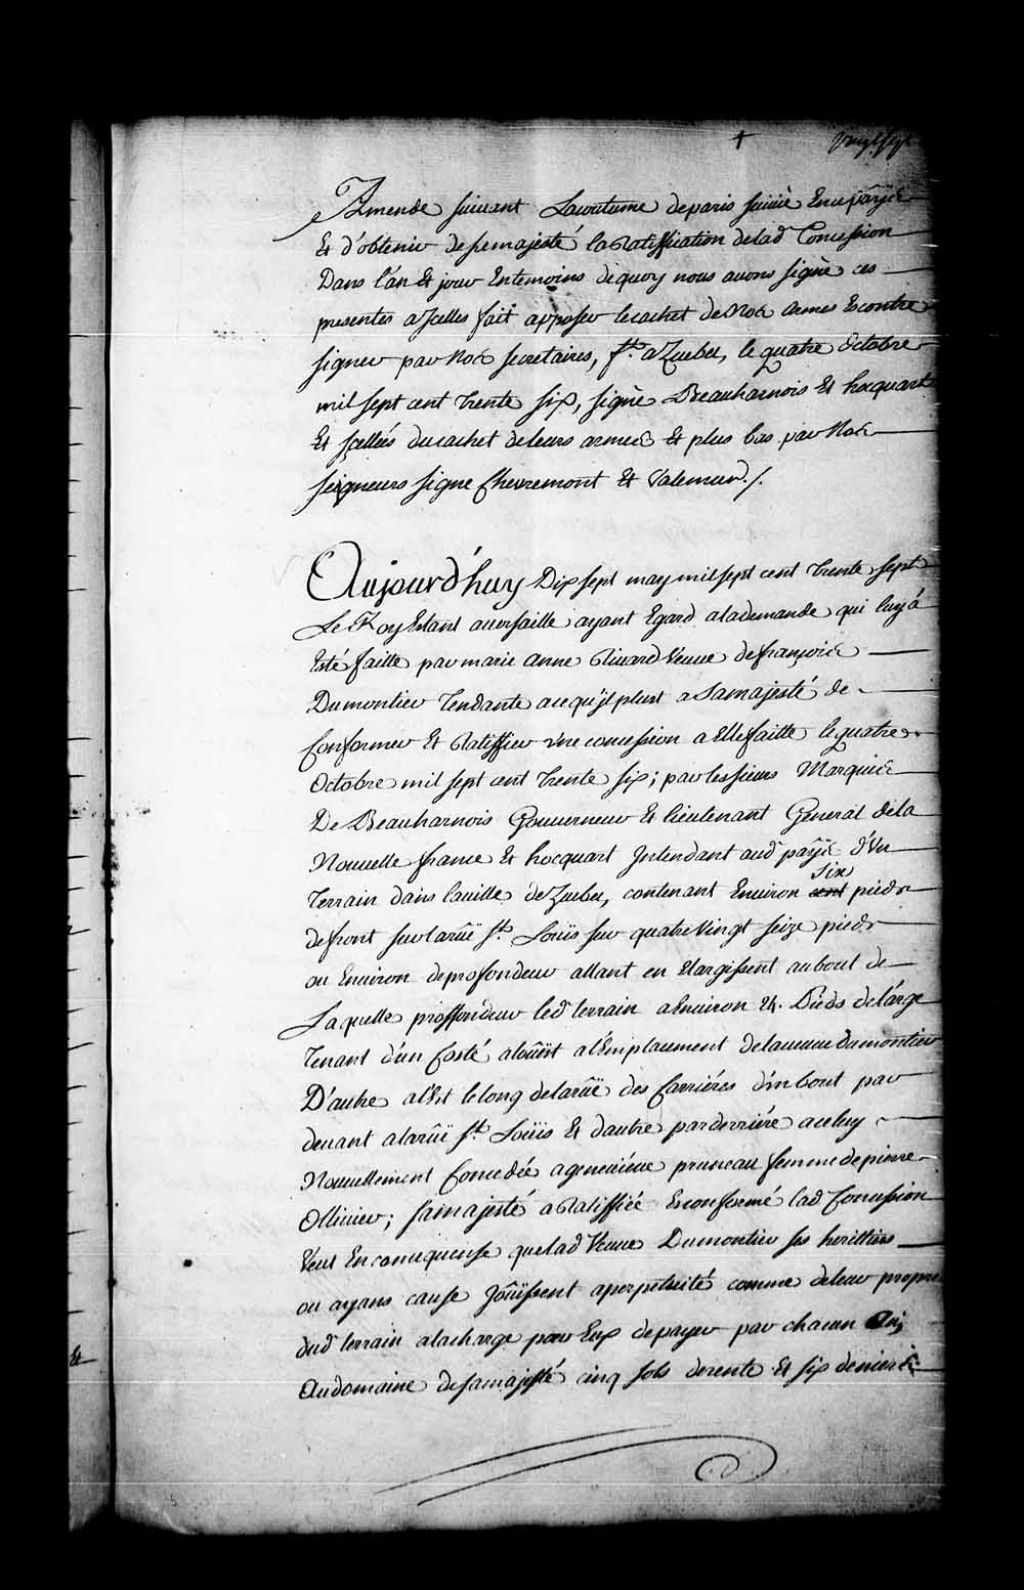 + Vingt sept
Amende suivant Lacoutume deparis suivie Encepaÿs
Et d'obtenir desamajesté la Ratiffication delad Concession
Dans l'an Et jour Entemoins dequoy nous avons signé ces
presentes aJcelles fait apposer lecachet de Nos armes Econtre
signer par Nos secretaires, ft. aQuebec, le quatre Octobre
mil sept cent trente six, signé Beauharnois Et hocquart
Et scellées ducachet deleurs armes Et plus bas par Nos
seigneurs signe Chevremont Et Valemur./.
Aujourd'huy Dix sept may mil sept cent trente sept
Le Roy Estant aversaille ayant Egard alademande qui luy a
Esté faitte par marie anne Rivard Veuve defrançois
Dumontier tendante acequ'jl plust aSamajesté de
Conformer Et Ratiffier vne concession aEllefaitte lequatre
Octobre mil sept cent trente six; par lessieurs Marquis
De Beauharnois Gouverneur Et lieutenant Général dela
Nouvelle france Et hocquart Jntendant aud paÿs d'Vn
Terrain dans laville deQuebec, contenant Environ cent pieds
Six
defront surlaruë St. Loüis sur quatre Vingt seize pieds
ou Environ deprofondeur allant en Elargissent aubout de
Laquelle proffondeur led terrain aEnviron 24. Pieds delarge
Tenant d'un Costé aloüest al'Emplacement delaveuve dumontier
D'autre al'Est lelong delaruë des Carriéres d'un bout par
devant alaruë St. Loüis Et dautre parderriére aceluy
Nouvellement Concedée agenevieve pruneau femme depierre
Ollivier; samajesté aRatiffiée Econfermé lad Concession
Veut Enconsequense quelad Veuve Dumontier ses heritiers
ou ayans cause joüissent aperpetuité comme deleur propre
dud terrain alacharge pour Eux depayer par chacun An;
Audomaine desamajesté cinq sols derente Et six deniers
Et